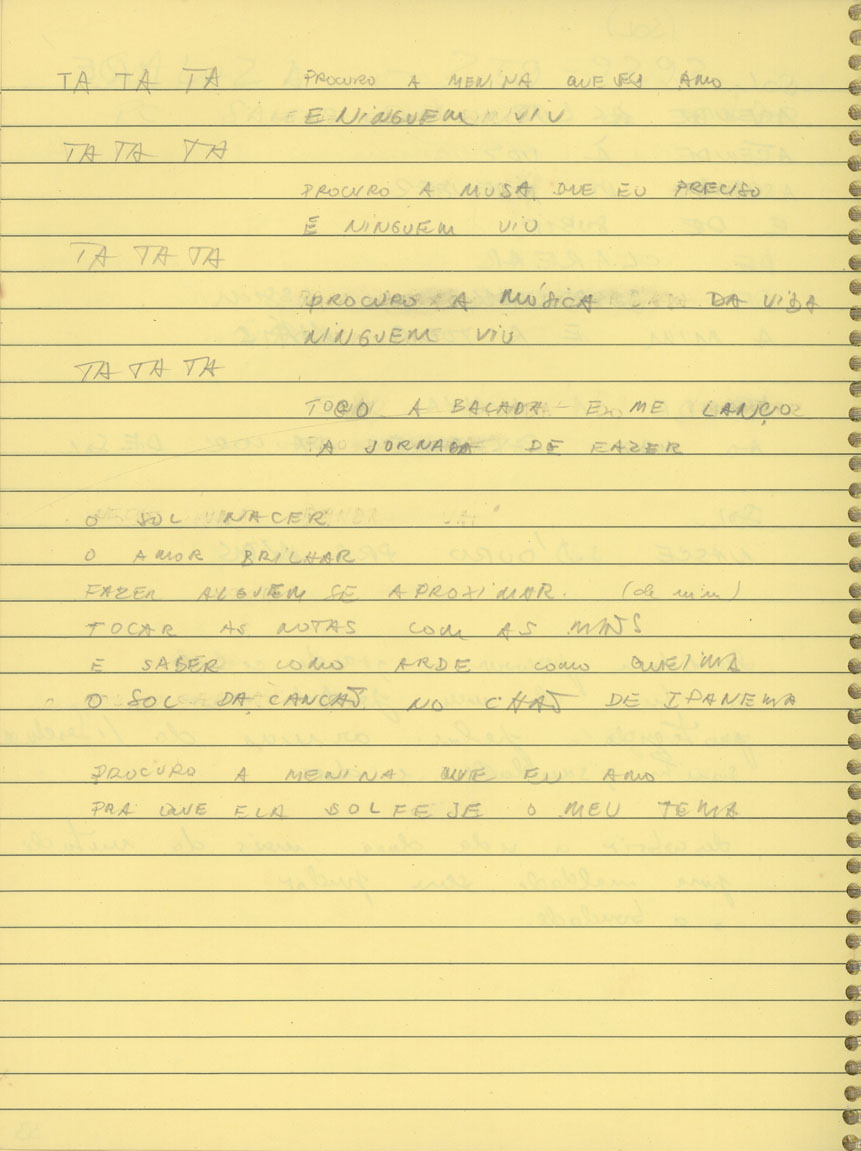 TA TA TA PROCURO A MENINA QUE EU AMO
E NINGUEM VIU
TA TA TA
PROCURO A MUSA QUE EU PRECISO
E NINGUEM VIU
TA TA TA
PROCURO A MÚSICA DA VIDA
NINGUEM VIU
TA TA TA
TOCO A BALADA - EU ME LANÇO
A JORNADA DE FAZER
O SOL NACER
O AMOR BRILHAR
FAZER ALGUEM SE APROXIMAR. (de mim)
TOCAR AS NOTAS COM AS MÃOS
E SABER COMO ARDE COMO QUEIMA
O SOL DA CANCÃO NO CHÃO DE IPANEMA
PROCURO A MENINA QUE EU AMO
PRA QUE ELA SOLFEJE O MEU TEMA